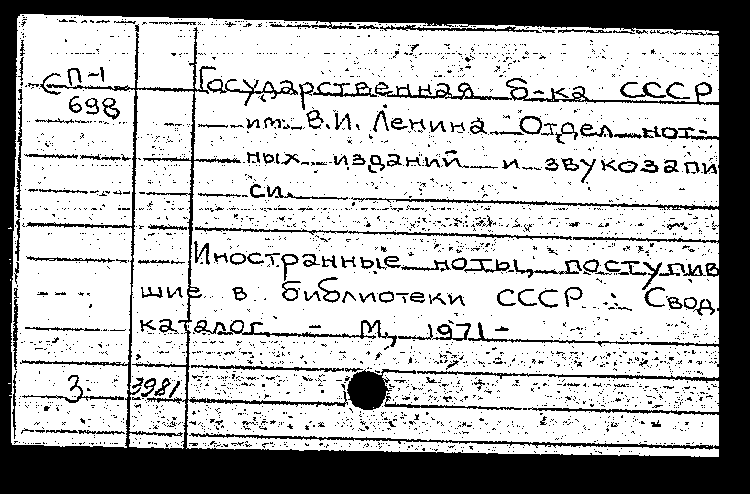 СП-1
698
Государственная б-ка СССР
им. В.И. Ленина Отдел нот-
ных изданий и звукозапи
си.
Иностранные ноты, поступив
шие в библиотеки СССР : Свод.
каталог. - М., 1971-
3. 3981